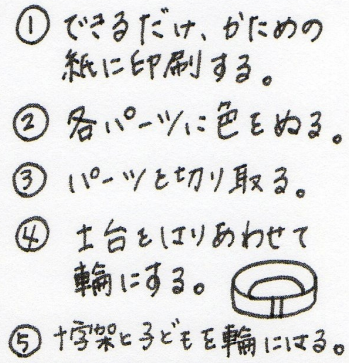 ① できるだけ、かための
紙に印刷する。
② 各パーツに色をぬる。
③ パーツを切り取る。
④ 土台をはりあわせて
輪にする。
⑤ 十字架と子どもを輪にはる。